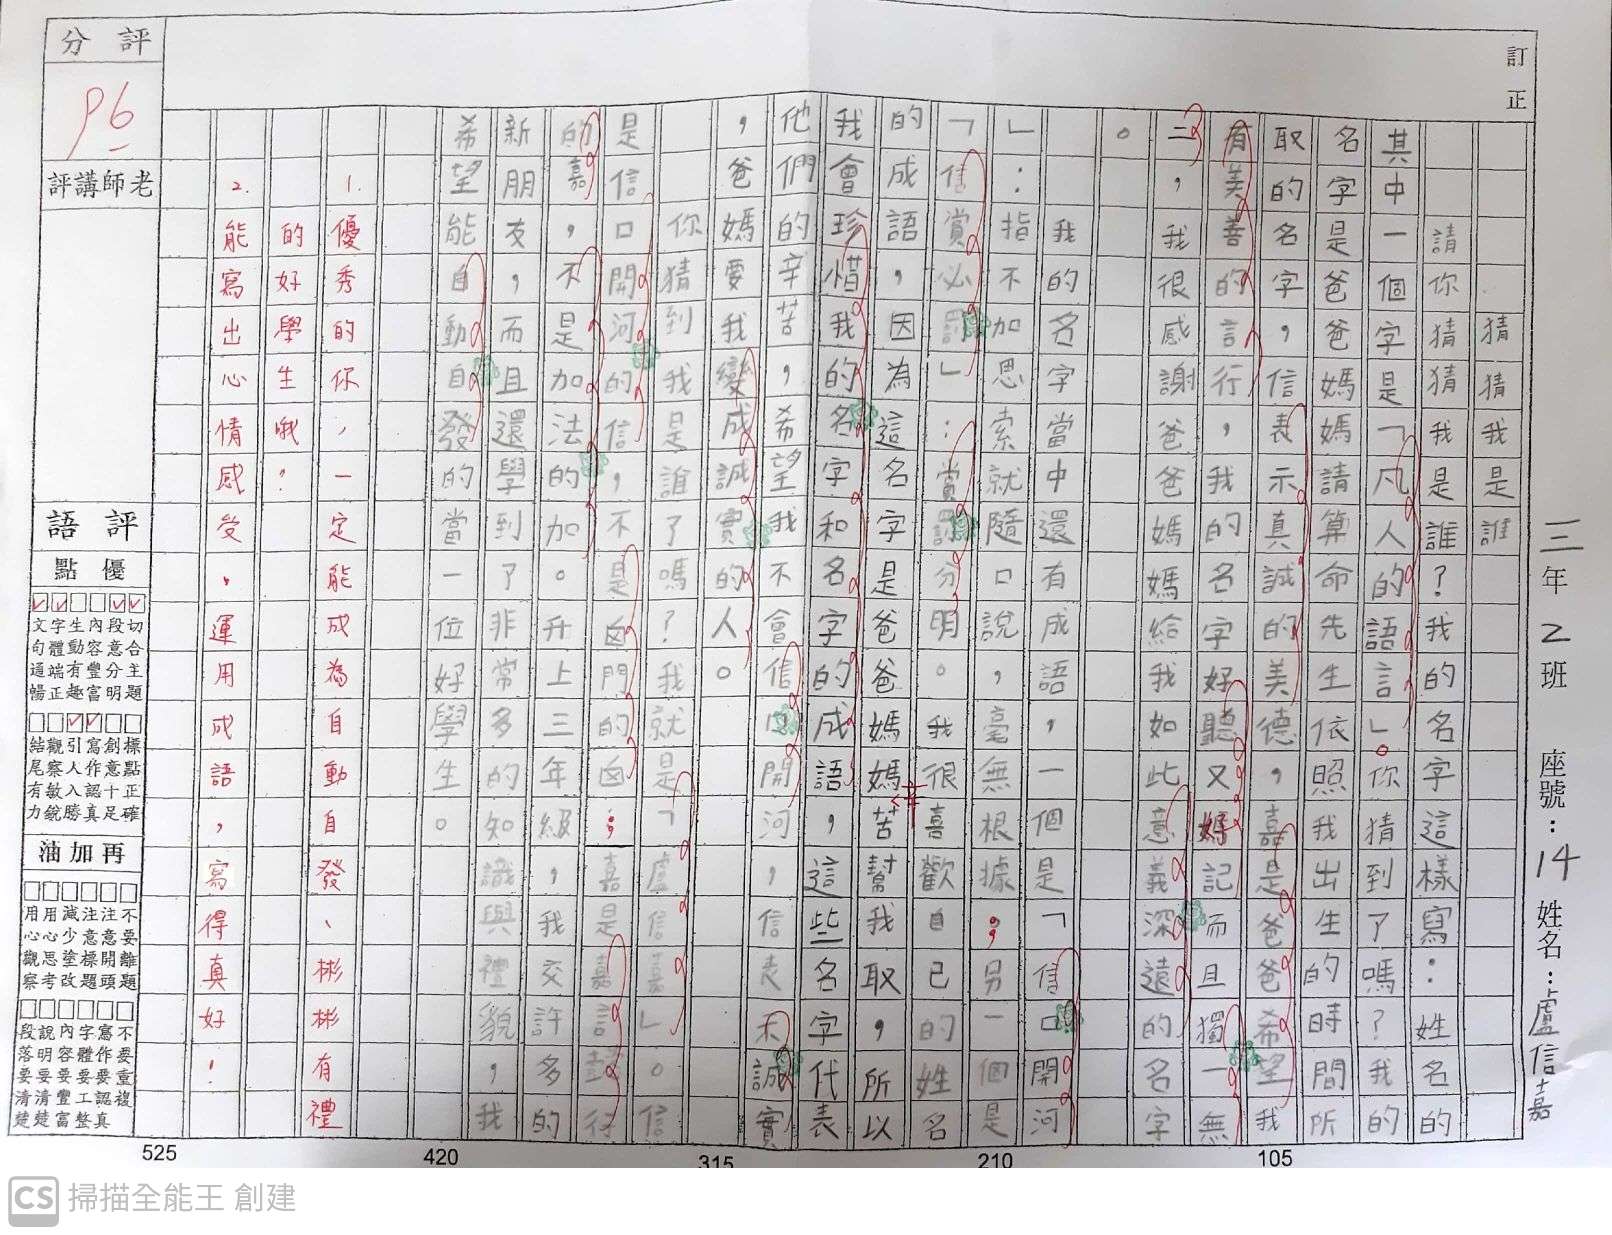 訂正
三年 2班 座號：14 姓名：盧信嘉
猜我是誰
請你猜猜我是誰？我的名字這樣寫：姓名的
其中一個字是「凡人的語言」。你猜到了嗎？我的
名字是爸爸媽媽請算命先生依照我出生的時間所
取的名字，信表示真誠的美德，嘉是爸爸希望我
有美善的言行，我的名字好聽又好記而且獨一無
二，我很感謝爸爸媽媽給我如此意義深遠的名字
。
我的名字當中還有成語，一個是「信口開河
」：指不加思索就隨口說，毫無根據；另一個是
「信賞必罰」：賞罰分明。我很喜歡自己的姓名
的成語，因為這名字是爸爸媽媽辛苦幫我取，所以
我會珍惜我的名字和名字的成語，這些名字代表
他們的辛苦，希望我不會信口開河，信表示誠實
，爸媽要我變成誠實的人。
你猜到我是誰了嗎？我就是「盧信嘉」。信
是信口開河的信，不是囟門的囟；嘉是嘉言懿行
的嘉，不是加法的加。升上三年級，我交許多的
新朋友，而且還學到了非常多的知識與禮貌，我
希望能自動自發的當一位好學生。
1.優秀的你，一定能成為自動自發、彬彬有禮
的好學生哦？
2.能寫出心情感受，運用成語，寫得真好！
評分
96
老師講評
評語
優點
切合主題
段意分明
內容豐富
生動有趣
字體端正
文句通暢
標點正確
創意十足
寫作認真
引人入勝
觀察敏銳
結尾有力
再加油
不要離題
注意開頭
注意標題
減少塗改
用心思考
用心觀察
不要重複
寫作要認真
字體要工整
內容要豐富
說明要清楚
段落要清楚
105
210
315
420
525
CS 掃描全能王 創建